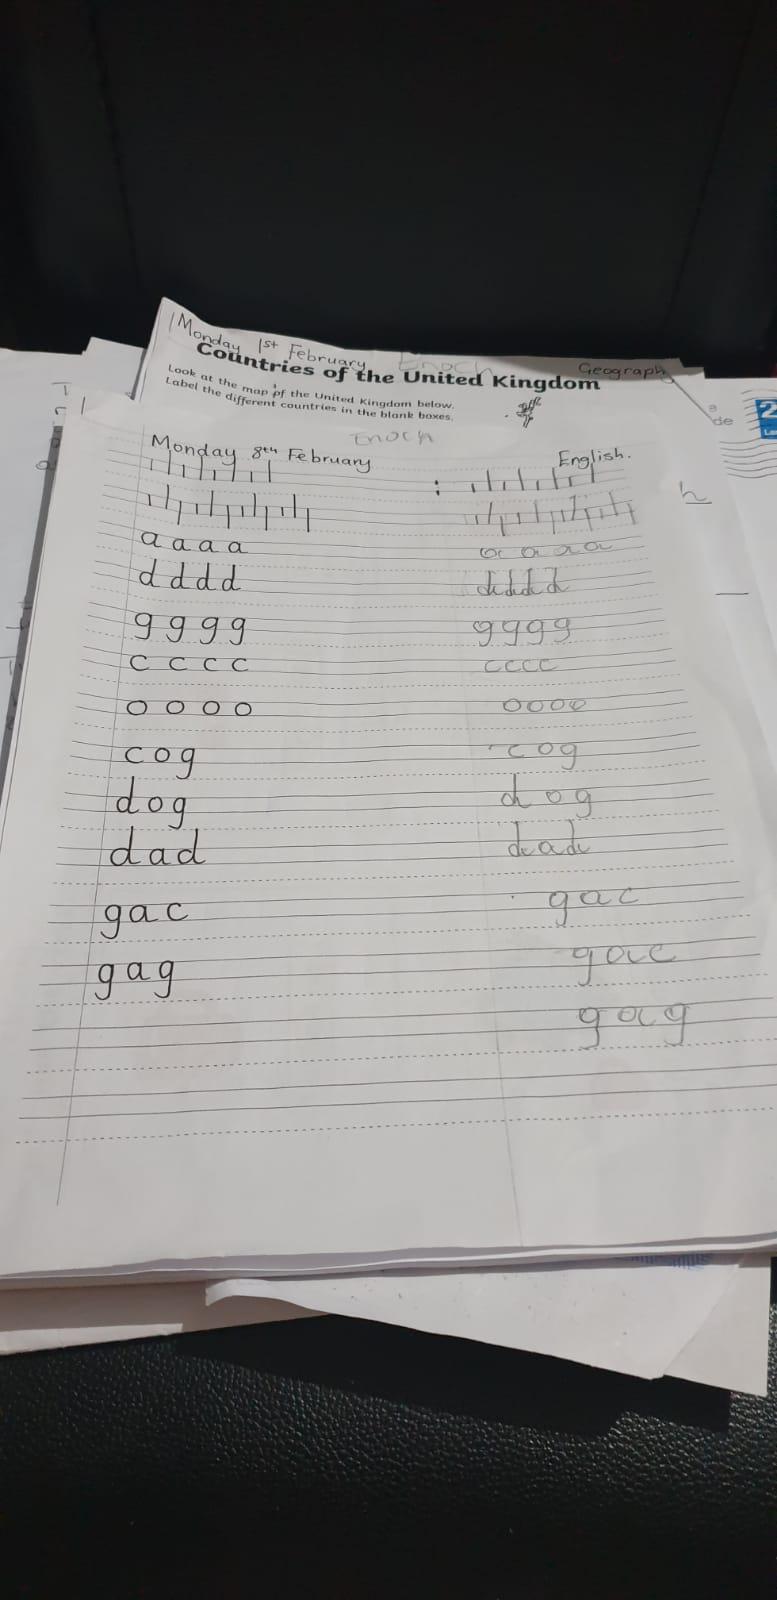 Monday 1st February Enoch Geography
Countries of the United Kingdom
Look at the map of the United Kingdom below.
Label the different countries in the blank boxes.
de
2
Enoch
Monday 8th February English.
h
a a a a a a a a
d d d d d d d d
g g g g g g g g
c c c c c c c c
o o o o o o o o
cog cog
dog dog
dad dad
gac gac
gag gac
gag